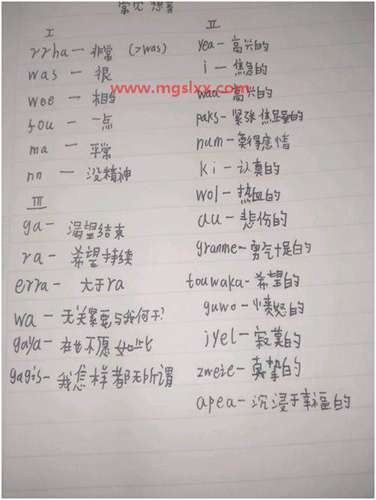 常见想音
I
rrha — 非常 (>was)
was — 很
wee — 相当
fou — 一点
ma — 平常
nn — 没精神
III
ga — 渴望结束
ra — 希望持续
erra — 大于ra
wa — 无关紧要与我何干?
gaya — 再也不愿如此
gagis — 我怎样都无所谓
II
yea — 高兴的
i — 焦急的
waa — 高兴的
paks — 紧张
num — 莫得感情
ki — 认真的
wol — 热血的
au — 悲伤的
granme — 勇气十足的
touwaka — 希望的
guwo — 愤怒的
jyel — 寂寞的
zweie — 真挚的
apea — 沉浸于幸福的
www.mgslxx.com